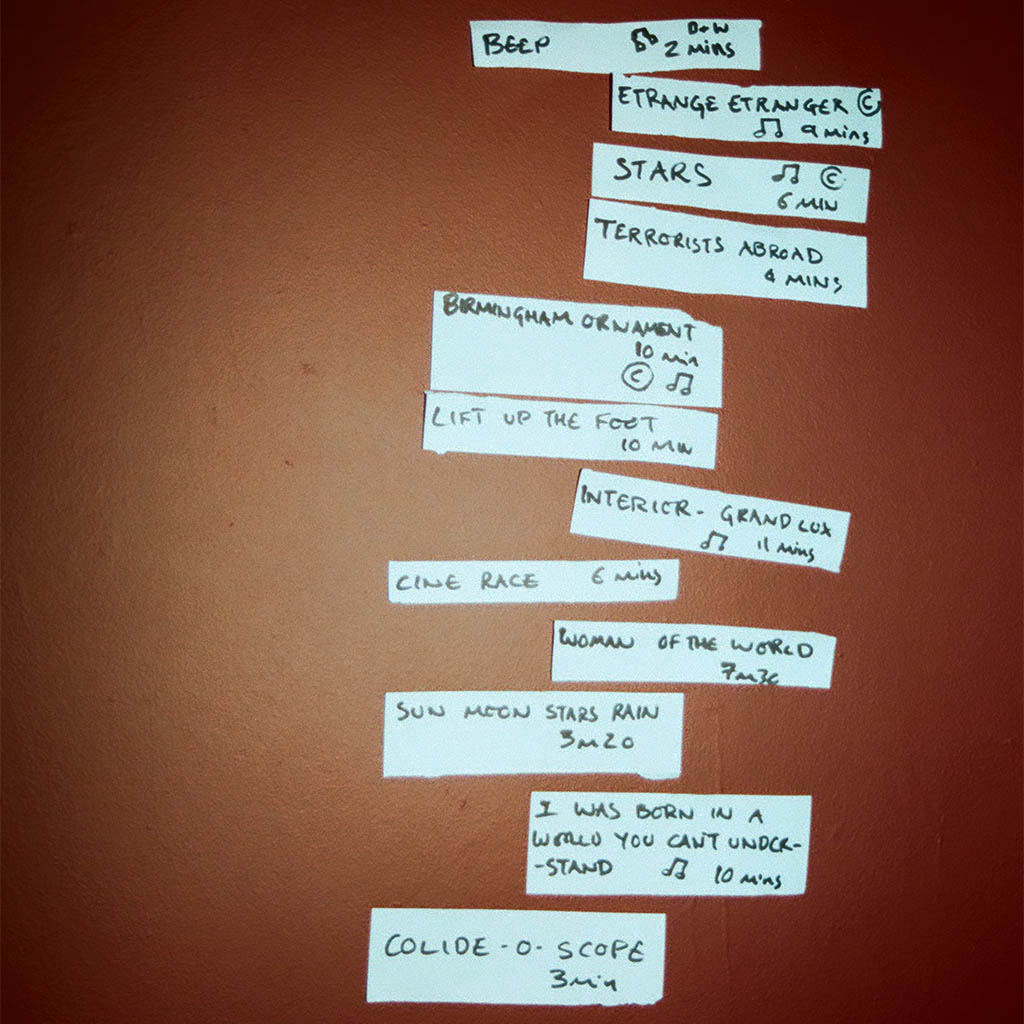 BEEP ♫ B+W
2 mins
ETRANGE ETRANGER ©
♫ 9 mins
STARS ♫ ©
6 MIN
TERRORISTS ABROAD
4 MINS
BIRMINGHAM ORNAMENT
10 min
© ♫
LIFT UP THE FOOT
10 MIN
INTERIOR - GRAND LUX
♫ 11 mins
CINE RACE 6 mins
WOMAN OF THE WORLD
7m30
SUN MOON STARS RAIN
3m20
I WAS BORN IN A
WORLD YOU CAN'T UNDER-
-STAND ♫ 10 mins
COLIDE-O-SCOPE
3min